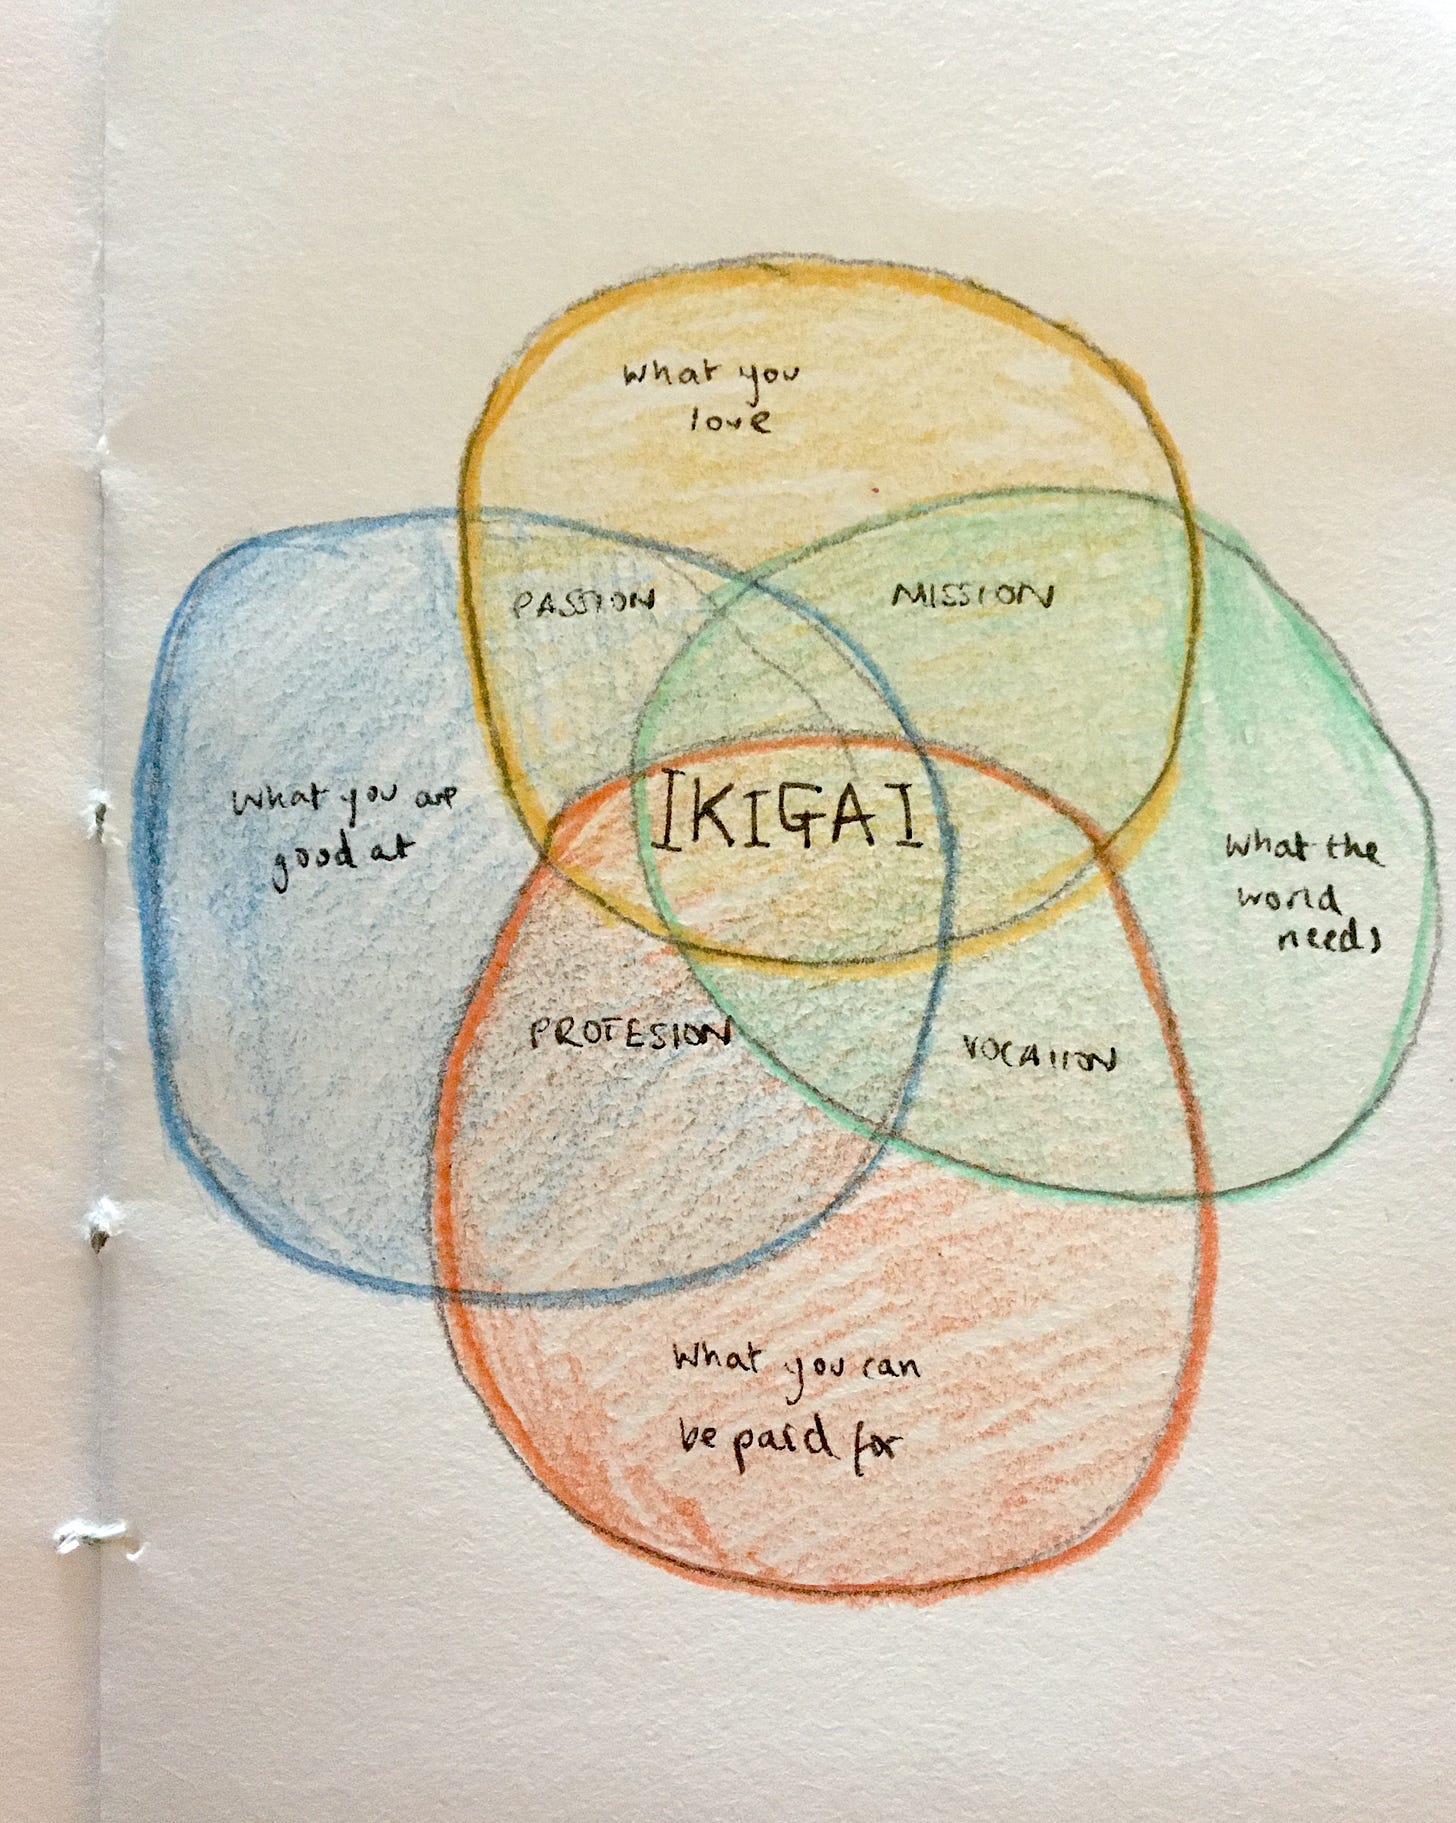 What you
love
PASSION
MISSION
What you are
good at
IKIGAI
What the
world
needs
PROFESION
VOCATION
What you can
be paid for